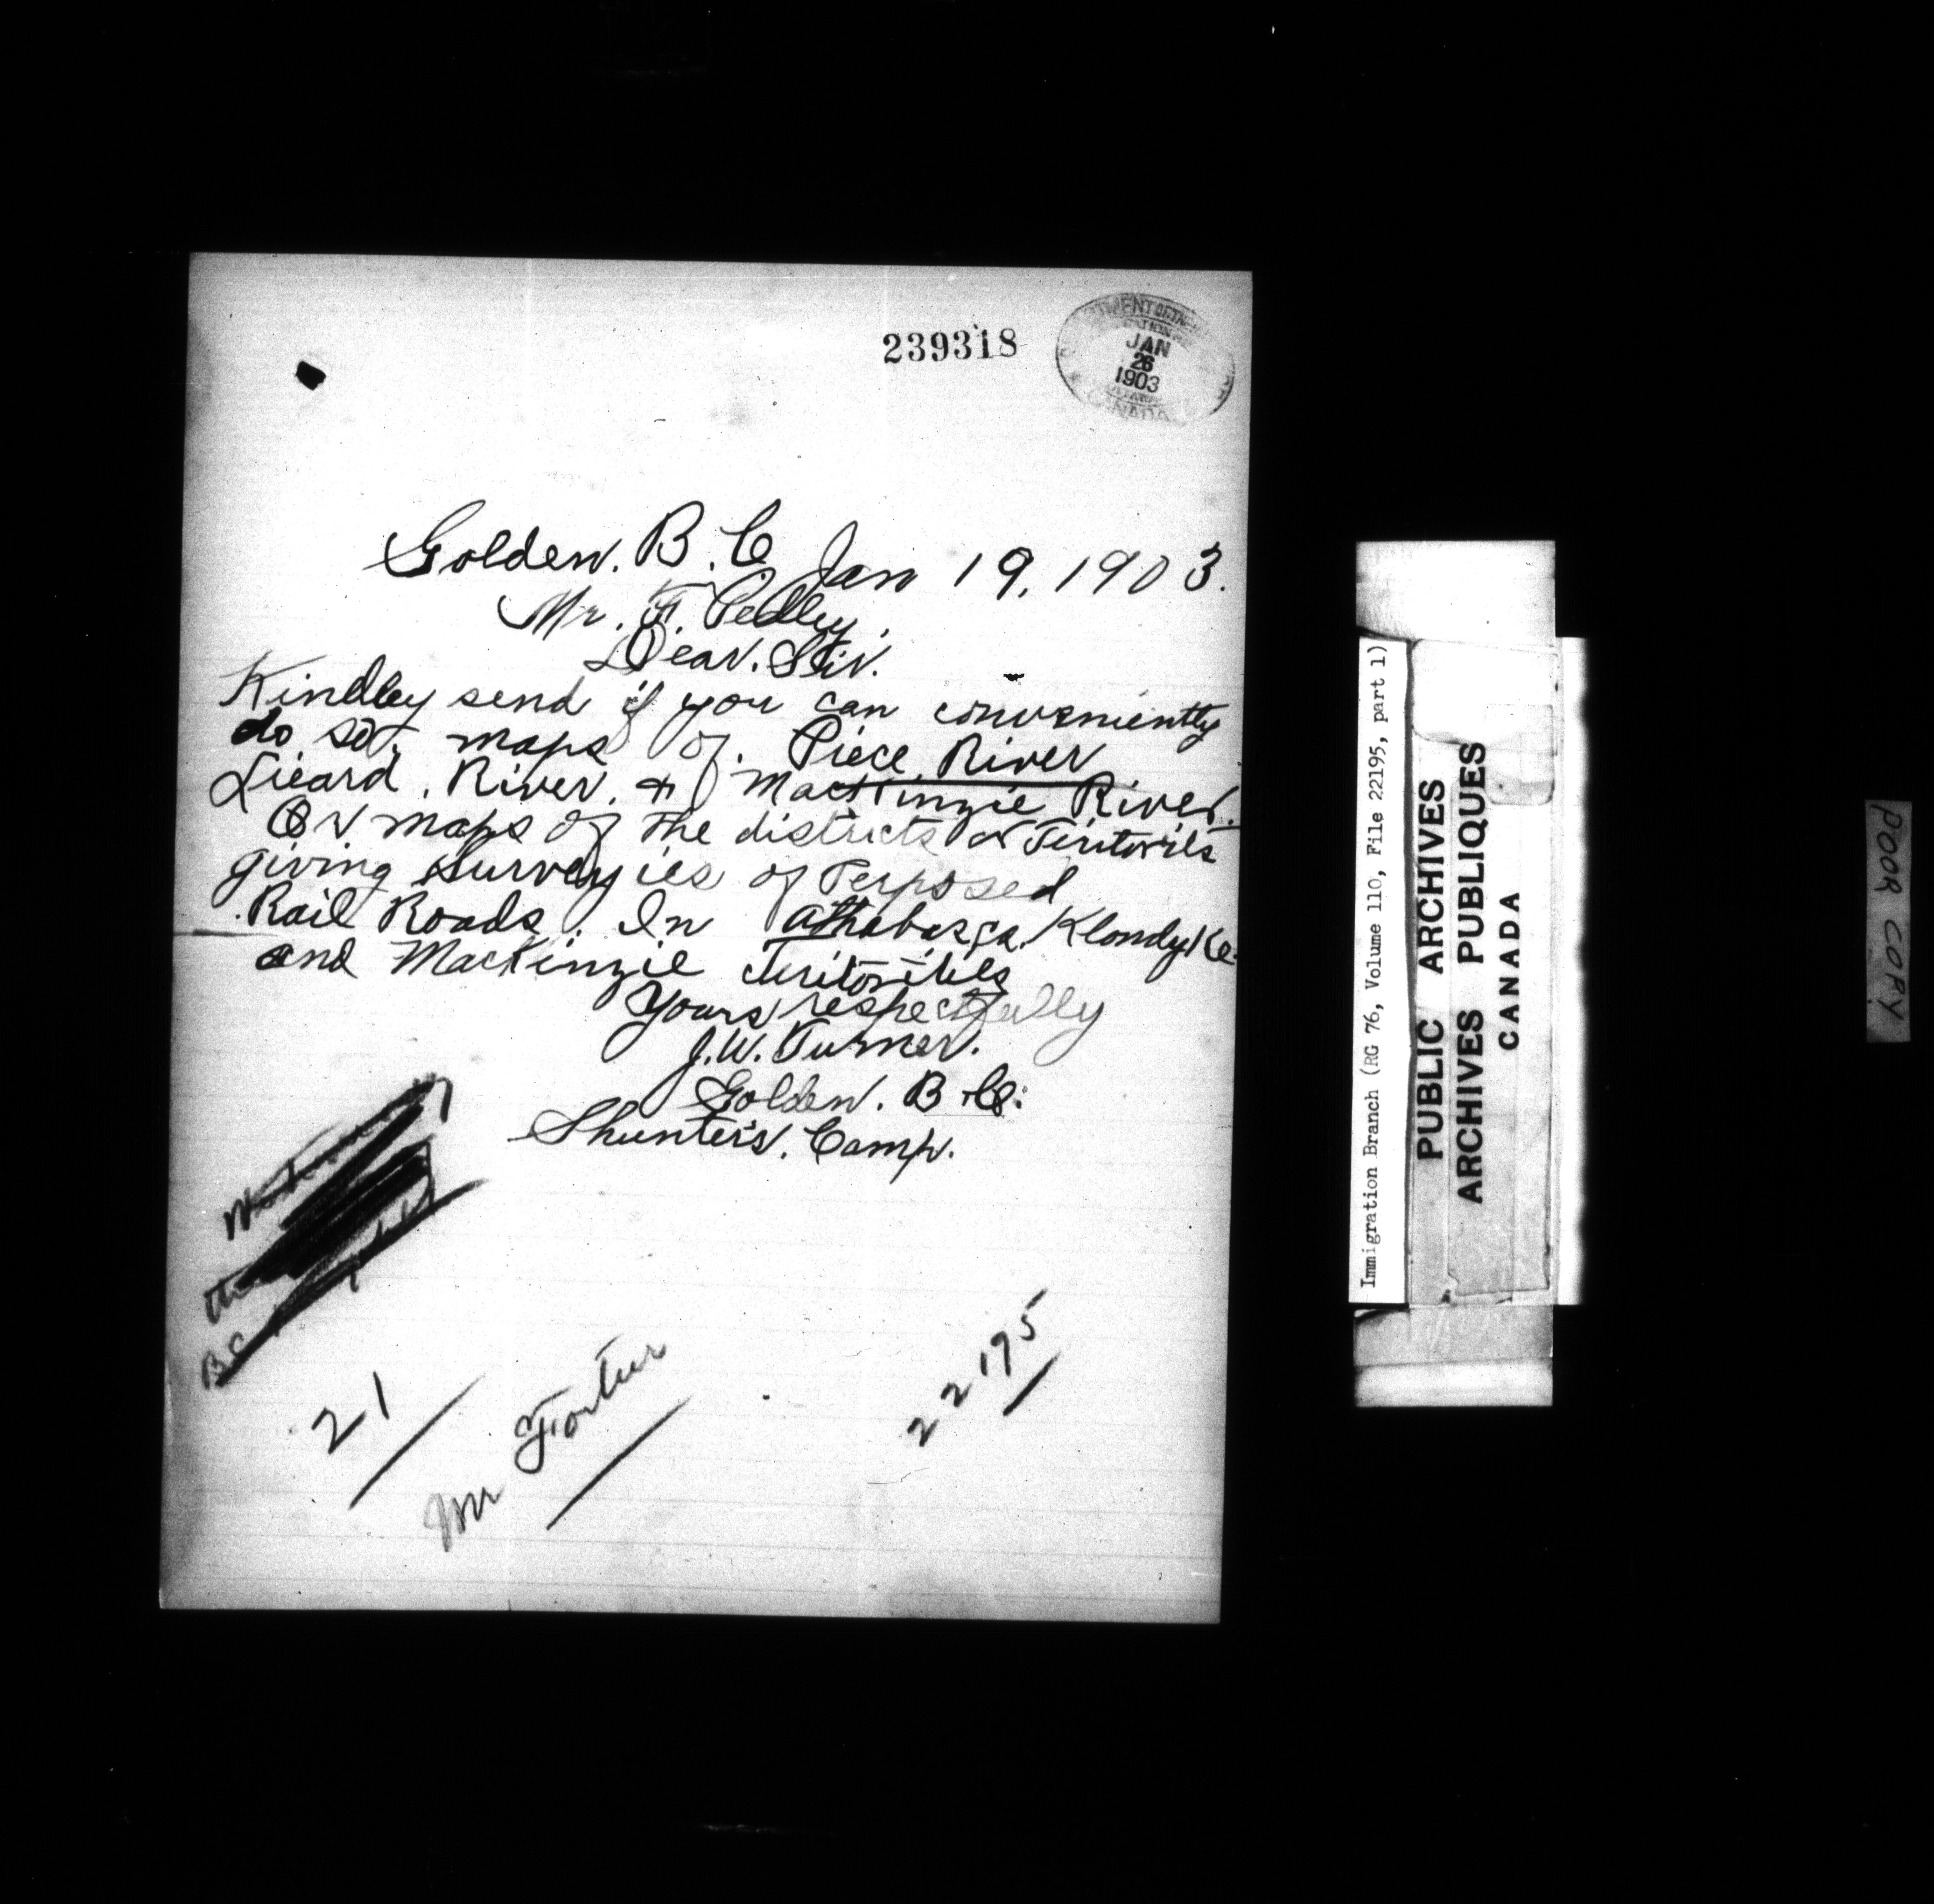 239318
JAN
26
1903
CANADA
Golden. B. C Jan 19, 1903.
Mr. F. Pedley.
Dear. Sir.
Kindley send if you can conveniently
do so, maps of. Piece River
Lieard. River. & MacKinzie River.
Or maps of the districts or Teritories
giving Surveyies of Perposed
Rail Roads. In Athabasca. KlondyKe
and MacKinzie Teritories
Yours respectfully
J. W. Turner.
Golden. B. C.
Shunters. Camp.
21
Mr
22195
Immigration Branch (RG 76, Volume 110, File 22195, part 1)
PUBLIC ARCHIVES
ARCHIVES PUBLIQUES
CANADA
POOR COPY